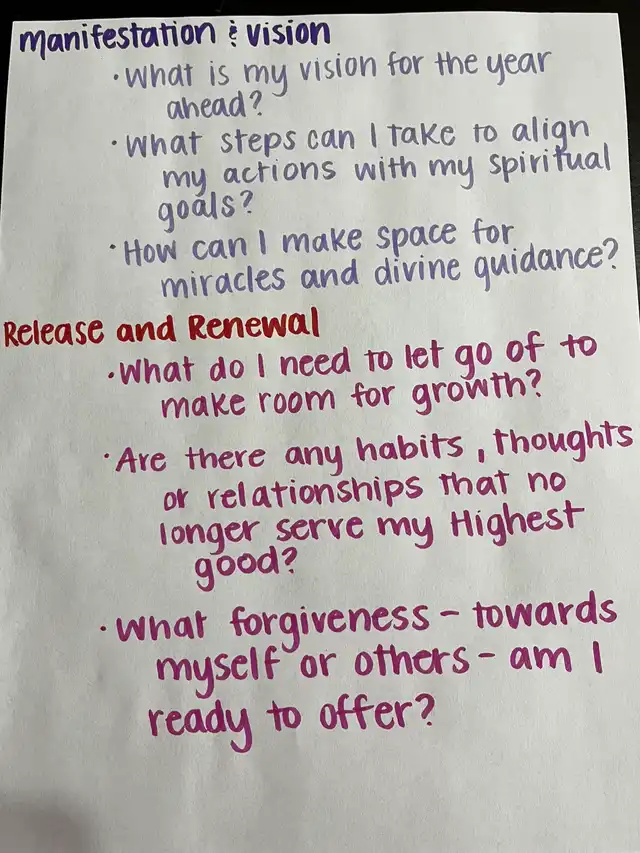 Manifestation & Vision
• What is my vision for the year
ahead?
• What steps can I take to align
my actions with my spiritual
goals?
• How can I make space for
miracles and divine guidance?
Release and Renewal
• What do I need to let go of to
make room for growth?
• Are there any habits, thoughts
or relationships that no
longer serve my Highest
good?
• What forgiveness - towards
myself or others - am I
ready to offer?